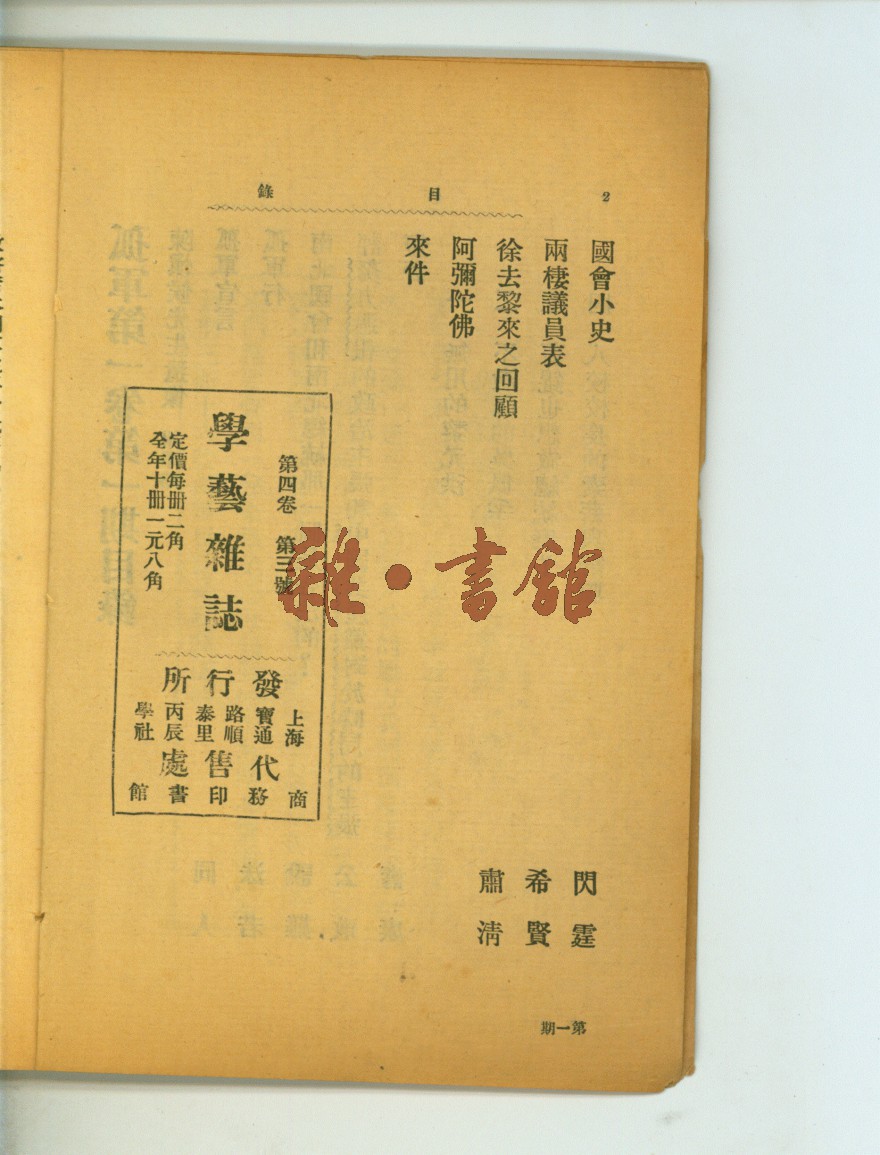 2
目 錄
國會小史 閃霆
兩棲議員表 希賢
徐去黎來之回顧 肅淸
阿彌陀佛
來件
第四卷 第三號
學藝雜誌
定價每冊二角
全年十冊一元八角
發行所
上海
寶通
路順
泰里
丙辰
學社
代售處
商務印書館
第一期
雜·書館